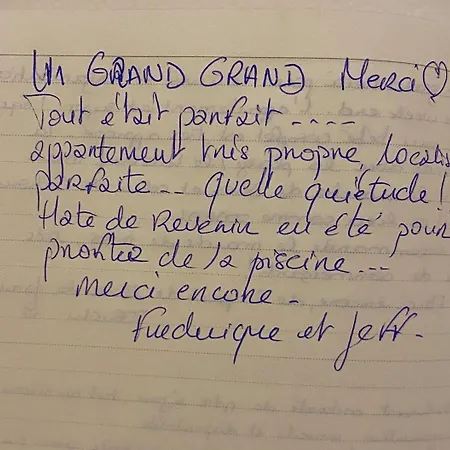 Un GRAND GRAND Merci ♡
Tout était parfait ----
appartement très propre, localis
parfaite -- quelle quiétude !
Hate de Revenir en été pour
profiter de la piscine ---
Merci encore -
Frederique et Jeff -